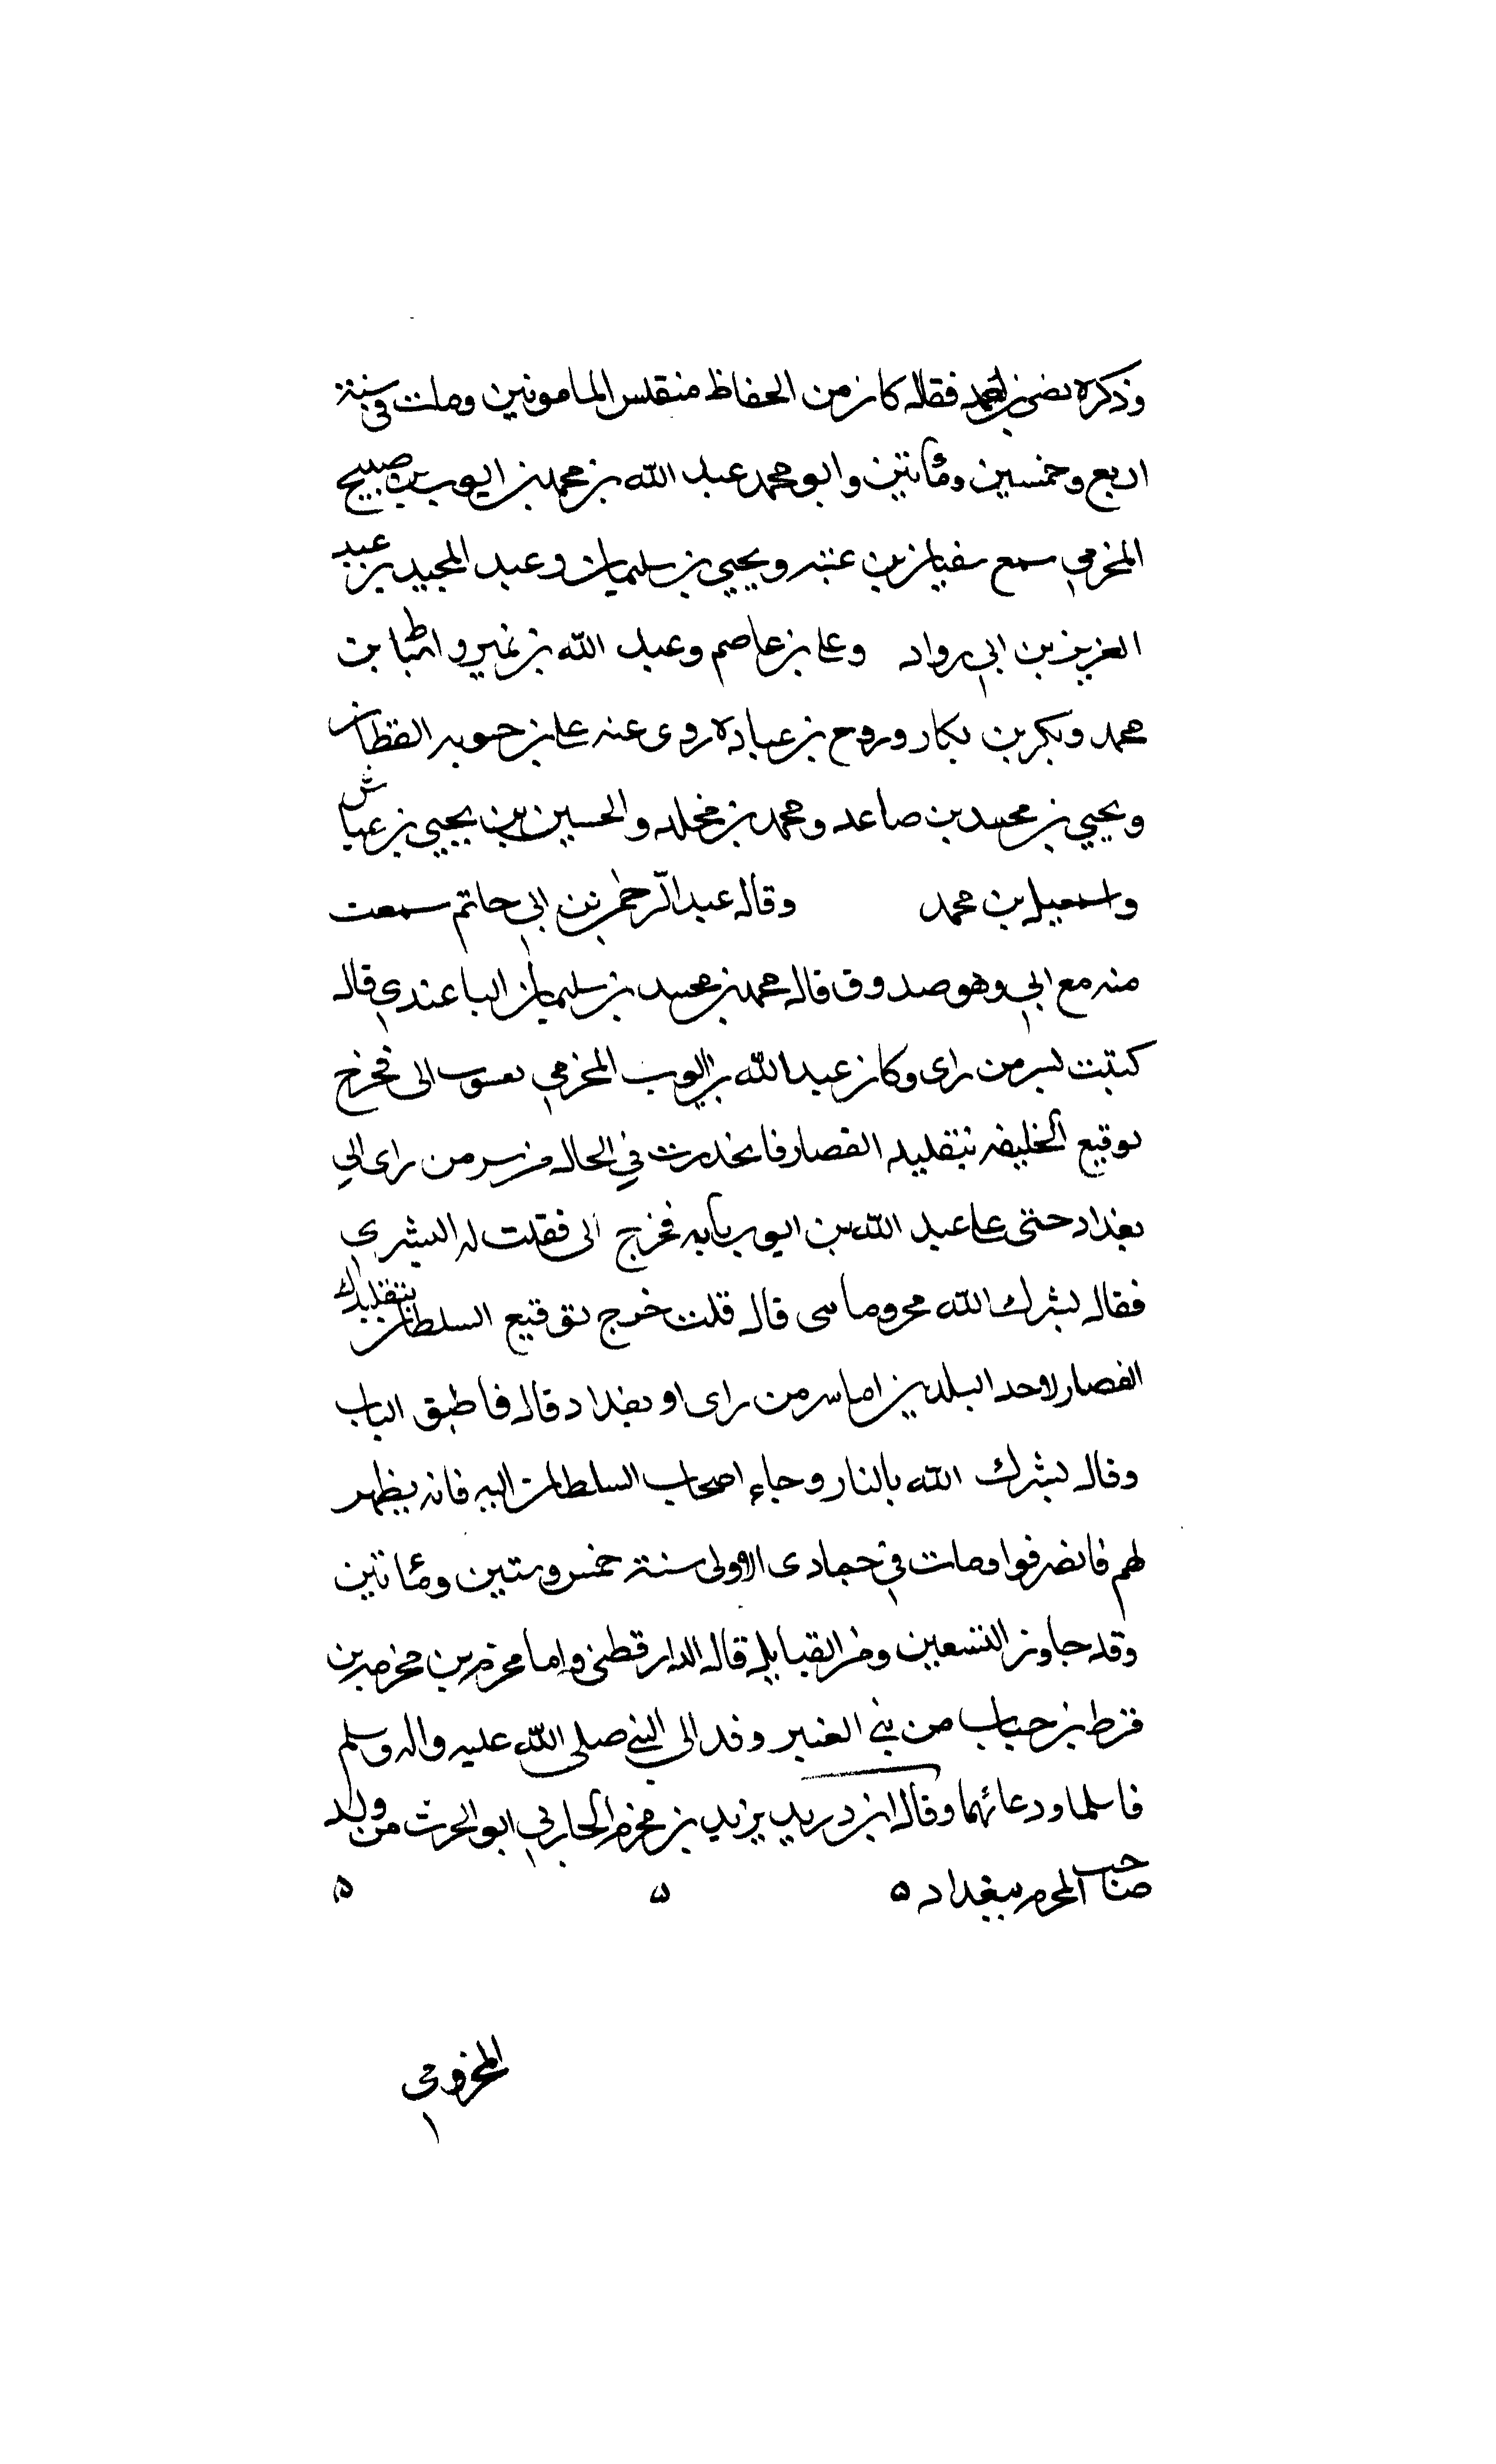 وذكره نصر بن احمد فقال كان من الحفاظ متقلس المامونين ومات في سنة
اربع وخمسين ومائتين وابو محمد عبد الله بن محمد بن ايوب بن صبيح
المخرمي سمع سفيان بن عيينه ويحيي بن سليمان وعبد المجيد بن عبد
العزيز بن ابي رواد وعلي بن عاصم وعبد الله بن نمير واسباط بن
محمد وبكر بن بكار وروح بن عباده روى عنه علي بن حسويه القطان
ويحيي بن محمد بن صاعد ومحمد بن مخلد والحسين بن يحيي بن عياش
واسمعيل بن محمد وقال عبد الرحمن بن ابي حاتم سمعت
منه مع ابي وهو صدوق قال محمد بن محمد بن سليمان الباغندي قال
كتبت بسر من راى وكان عبد الله بن ايوب المخرمي الى فخرج
توقيع الخليفه بتقليد القضا فانحدرت في الحال من سر من راى الي
بغداد حتى على عبد الله بن ايوب بابه فخرج الى فقلت له البشرى
فقال بشرك الله قال قلت خرج توقيع السلطان بتقليدك
القضا لاحد البلدين اما سر من راى او بغداد قال فاطبق الباب
وقال بشرك الله بالنار وجاء اصحاب السلطان اليه فانه يظهر
لهم فانصرفوا ومات في جمادى الاولى سنة خمس وستين ومائتين
وقد جاوز التسعين ومن القبايل قال الدارقطني واما مخرم بن مخرمه بن
قرط بن جناب من بني العنبر وفد الى النبي صلى الله عليه واله وسلم
فاسلما ودعا لهما وقال ابن دريد يزيد بن مخرم الحارثي ابو الحرث من ولد
صاحب المخرم ببغداد ه ه ه
المخزومي